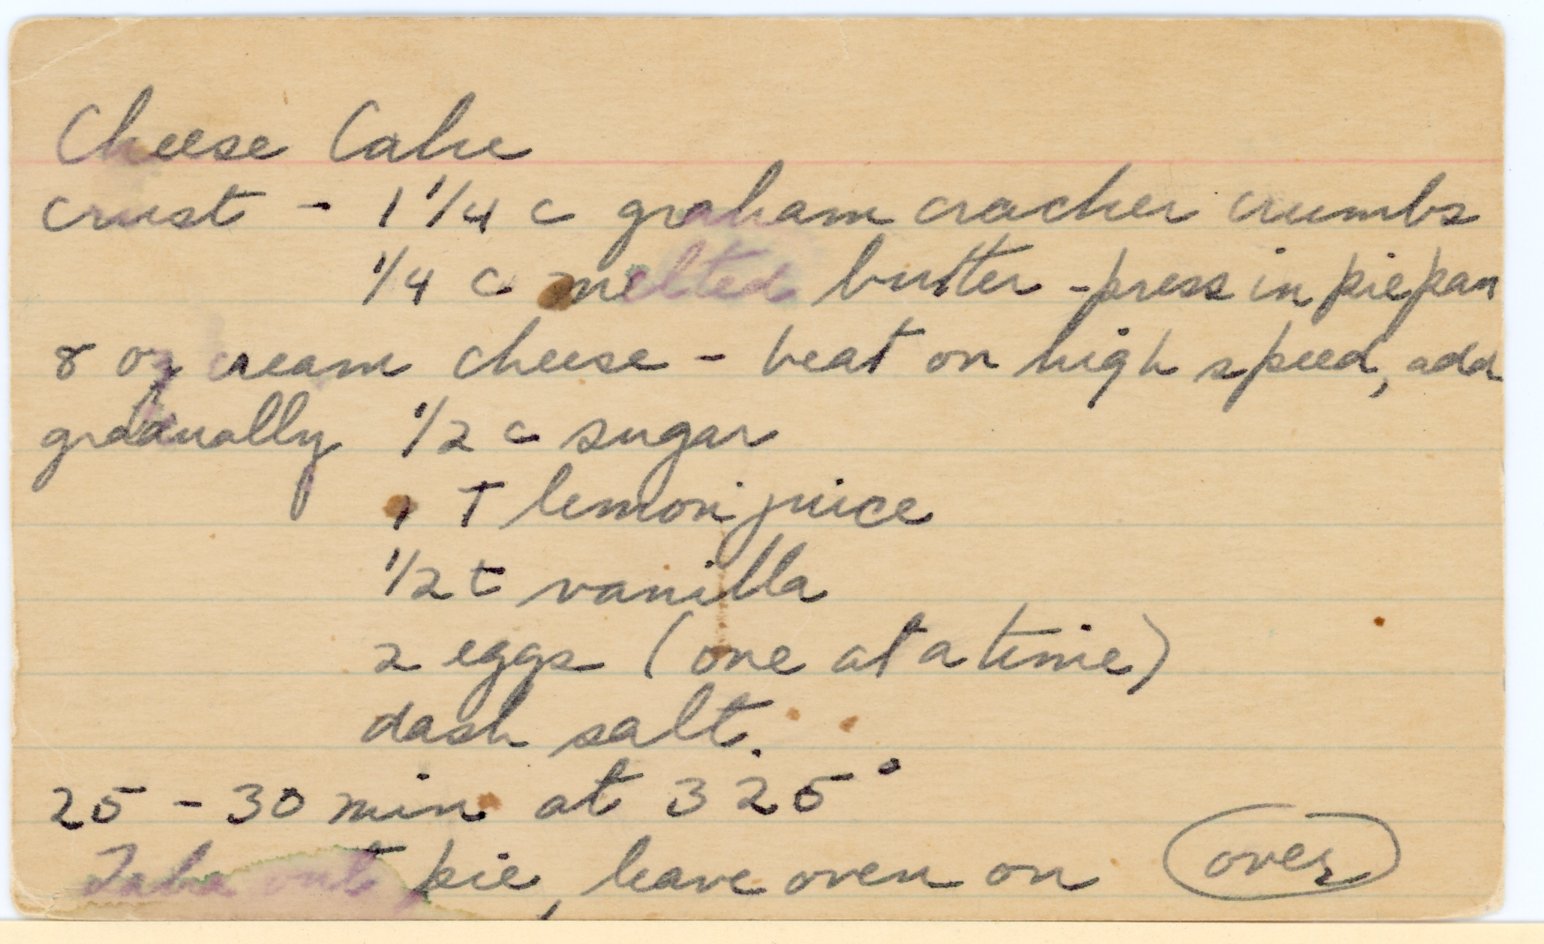 Cheese Cake
crust - 1 1/4 c graham cracker crumbs
1/4 c melted butter - press in pie pan
8 oz cream cheese - beat on high speed, add
gradually 1/2 c sugar
1 T lemon juice
1/2 t vanilla
2 eggs (one at a time)
dash salt.
25 - 30 min at 325°
Take out pie, leave oven on over